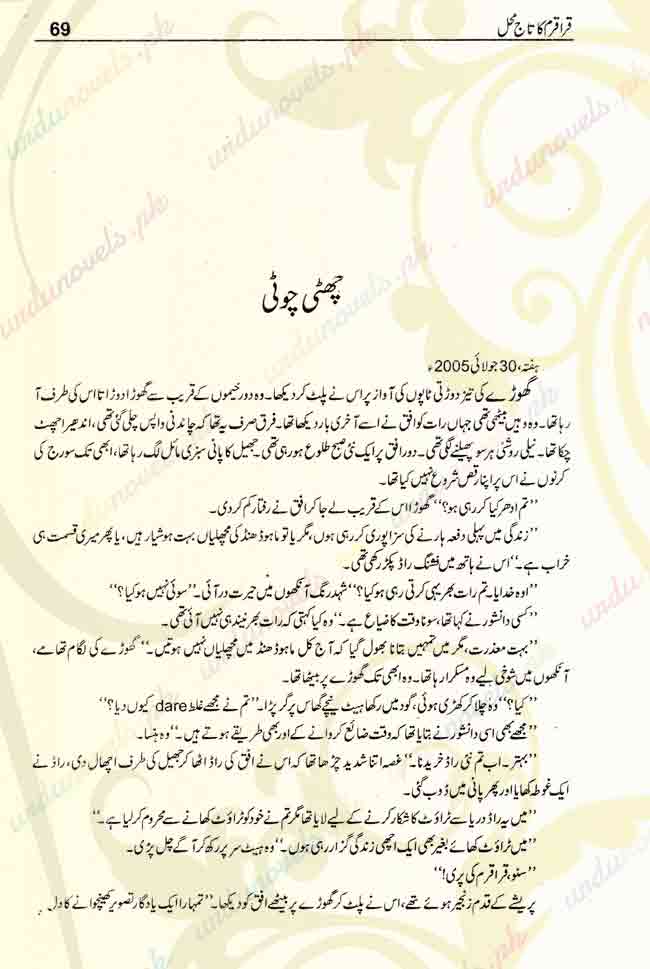 قراقرم کا تاج محل 69
چھٹی چوٹی
ہفتہ، 30 جولائی 2005ء
گھوڑے کی تیز دوڑتی ٹاپوں کی آواز پر اس نے پلٹ کر دیکھا۔ وہ دور خیموں کے قریب سے گھوڑا دوڑاتا اس کی طرف آ
رہا تھا۔ وہ وہیں بیٹھی تھی جہاں رات کو افق نے اسے آخری بار دیکھا تھا۔ فرق صرف یہ تھا کہ چاندنی واپس چلی گئی تھی، اندھیرا چھٹ
چکا تھا۔ نیلی روشنی ہر سو پھیلنے لگی تھی۔ دور افق پر ایک نئی صبح طلوع ہو رہی تھی۔ جھیل کا پانی سبزی مائل لگ رہا تھا، ابھی تک سورج کی
کرنوں نے اس پر اپنا رقص شروع نہیں کیا تھا۔
”تم ادھر کیا کر رہی ہو؟“ گھوڑا اس کے قریب لے جا کر افق نے رفتار کم کر دی۔
”زندگی میں پہلی دفعہ ہارنے کی سزا پوری کر رہی ہوں، مگر یا تو ماہوڈھنڈ کی مچھلیاں بہت ہوشیار ہیں، یا پھر میری قسمت ہی
خراب ہے۔“ اس نے ہاتھ میں فشنگ راڈ پکڑ رکھی تھی۔
”اوہ خدایا۔ تم رات بھر یہی کرتی رہی ہو کیا؟“ شہد رنگ آنکھوں میں حیرت در آئی۔ ”سوئی نہیں ہو کیا؟“
”کسی دانشور نے کہا تھا، سونا وقت کا ضیاع ہے۔“ وہ کیا کہتی کہ رات بھر نیند ہی نہیں آئی تھی۔
”بہت معذرت، مگر میں تمہیں بتانا بھول گیا کہ آج کل ماہوڈھنڈ میں مچھلیاں نہیں ہوتیں۔“ گھوڑے کی لگام تھامے،
آنکھوں میں شوخی لیے وہ مسکرا رہا تھا۔ وہ ابھی تک گھوڑے پر بیٹھا تھا۔
”کیا؟“ وہ چلا کر کھڑی ہوئی، گود میں رکھا ہیٹ نیچے گھاس پر گر پڑا۔ ”تم نے مجھے غلط dare کیوں دیا؟“
”مجھے بھی اسی دانشور نے بتایا تھا کہ وقت ضائع کروانے کے اور بھی طریقے ہوتے ہیں۔“ وہ ہنسا۔
”بہتر۔ اب تم نئی راڈ خریدنا۔“ غصہ اتنا شدید چڑھا تھا کہ اس نے افق کی راڈ اٹھا کر جھیل کی طرف اچھال دی، راڈ نے
ایک غوطہ کھایا اور پھر پانی میں ڈوب گئی۔
”میں یہ راڈ دریا سے ٹراؤٹ کا شکار کرنے کے لیے لایا تھا مگر تم نے خود کو ٹراؤٹ کھانے سے محروم کر لیا ہے۔“
”میں ٹراؤٹ کھائے بغیر بھی ایک اچھی زندگی گزار رہی ہوں۔“ وہ ہیٹ سر پر رکھ کر آگے چل پڑی۔
”سنو، قراقرم کی پری!“
پریشے کے قدم زنجیر ہوئے تھے، اس نے پلٹ کر گھوڑے پر بیٹھے افق کو دیکھا۔ ”تمہارا ایک یادگار تصویر کھنچوانے کا دل
urdunovels.pk